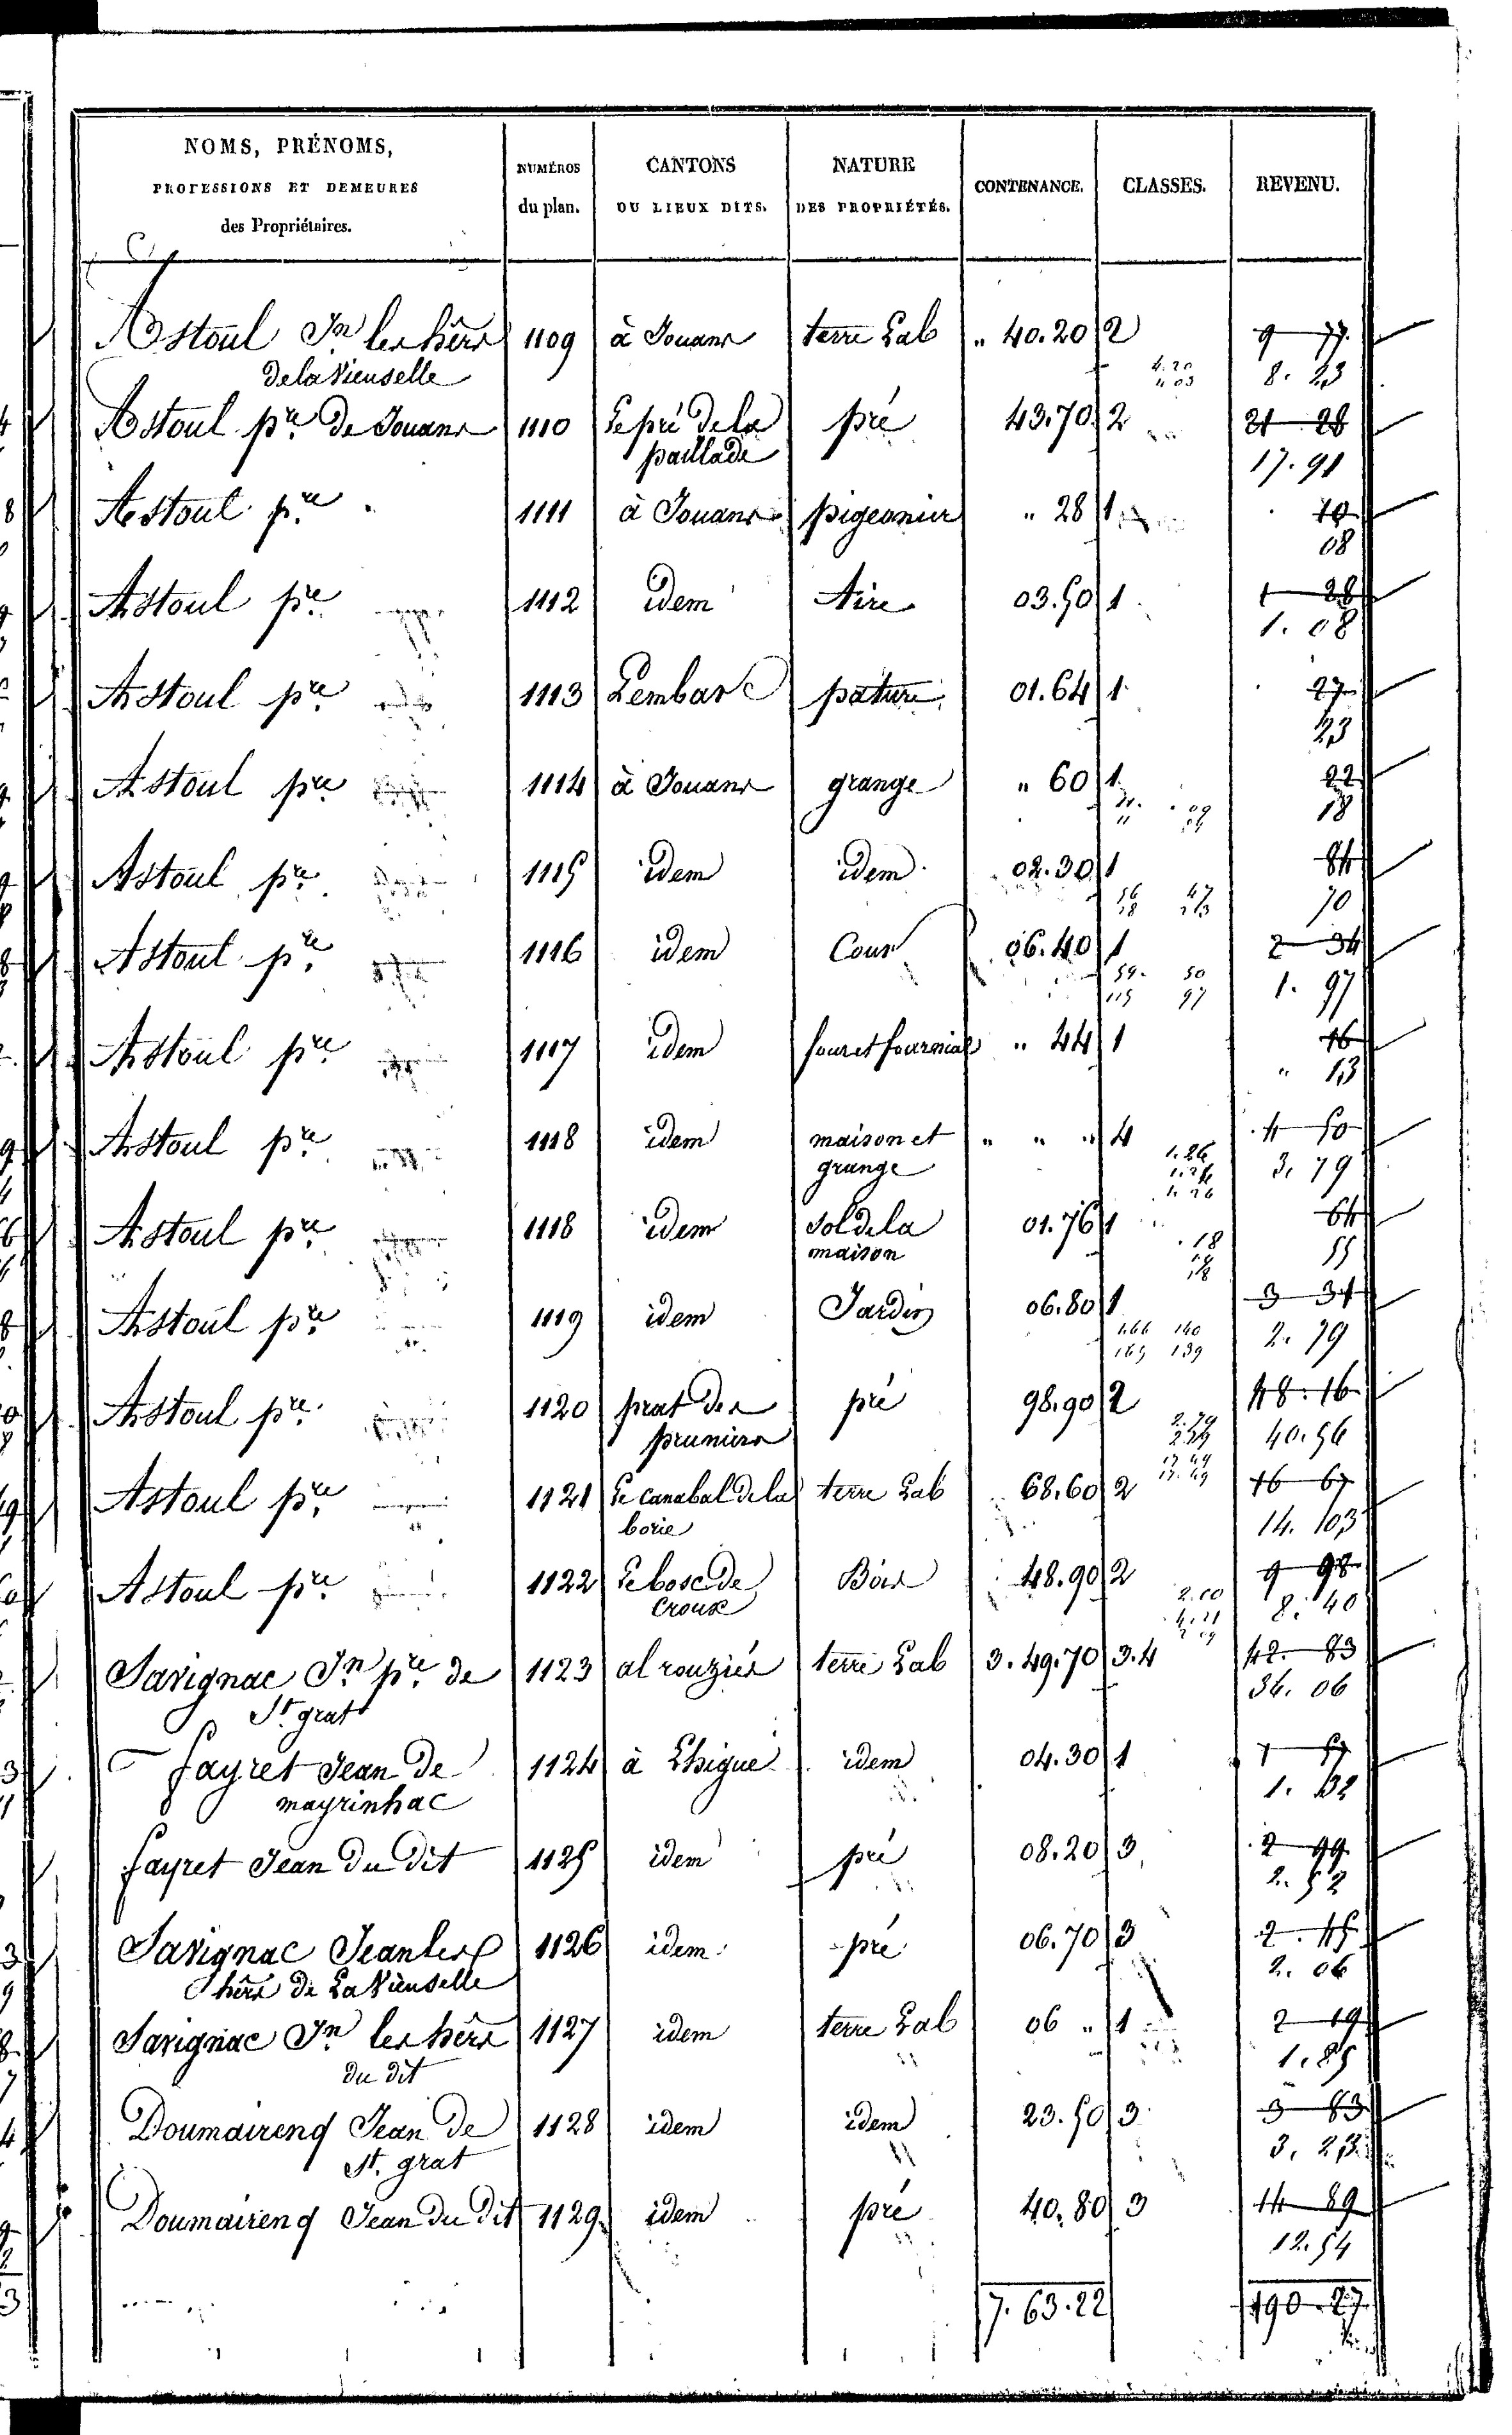 NOMS, PRÉNOMS, PROFESSIONS ET DEMEURES des Propriétaires. | NUMÉROS du plan. | CANTONS OU LIEUX DITS. | NATURE DES PROPRIÉTÉS. | CONTENANCE. | CLASSES. | REVENU.
Astoul Jn les hérs 1109 à Jouans terre Lab " 40.20 2 9 77
de la Vieuselle 8. 23
Astoul pre de Jouans 1110 Le pré de la pré 43.70 2 21 28
paillade 17. 91
Astoul pre 1111 à Jouans pigeonier " 28 1 10
08
Astoul pre 1112 idem Aire 03.50 1 1 28
1. 08
Astoul pre 1113 Lembars pature 01.64 1 27
23
Astoul pre 1114 à Jouans grange " 60 1 22
18
Astoul pre 1115 idem idem 02.30 1 84
70
Astoul pre 1116 idem Cour 06.40 1 2 34
1. 97
Astoul pre 1117 idem four et fournial " 44 1 16
" 13
Astoul pre 1118 idem maison et " " " 4 4 50
grange 3. 79
Astoul pre 1118 idem sol de la 01.76 1 64
maison 55
Astoul pre 1119 idem Jardin 06.80 1 3 31
2. 79
Astoul pre 1120 prat des pré 98.90 2 48. 16
pruniers 40. 56
Astoul pre 1121 Le canabal de la terre Lab 68.60 2 16 67
borie 14. 03
Astoul pre 1122 Le bosc de Bois 48.90 2 9 98
croux 8. 40
Savignac Jn pre de 1123 al rouziés terre Lab 3.49.70 3.4 42. 83
St grat 36. 06
fayret Jean de 1124 à Lhigue idem 04.30 1 1 57
mayrinhac 1. 32
fayret Jean du dit 1125 idem pré 08.20 3 2 99
2. 52
Savignac Jean les 1126 idem pré 06.70 3 2. 45
hérs de La Vieuselle 2. 06
Savignac Jn les hérs 1127 idem terre Lab 06 " 1 2 19
du dit 1. 85
Doumairenq Jean de 1128 idem idem 23.50 3 3 83
St. grat 3. 23
Doumairenq Jean du dit 1129 idem pré 40.80 3 14 89
12. 54
7. 63. 22 190. 27